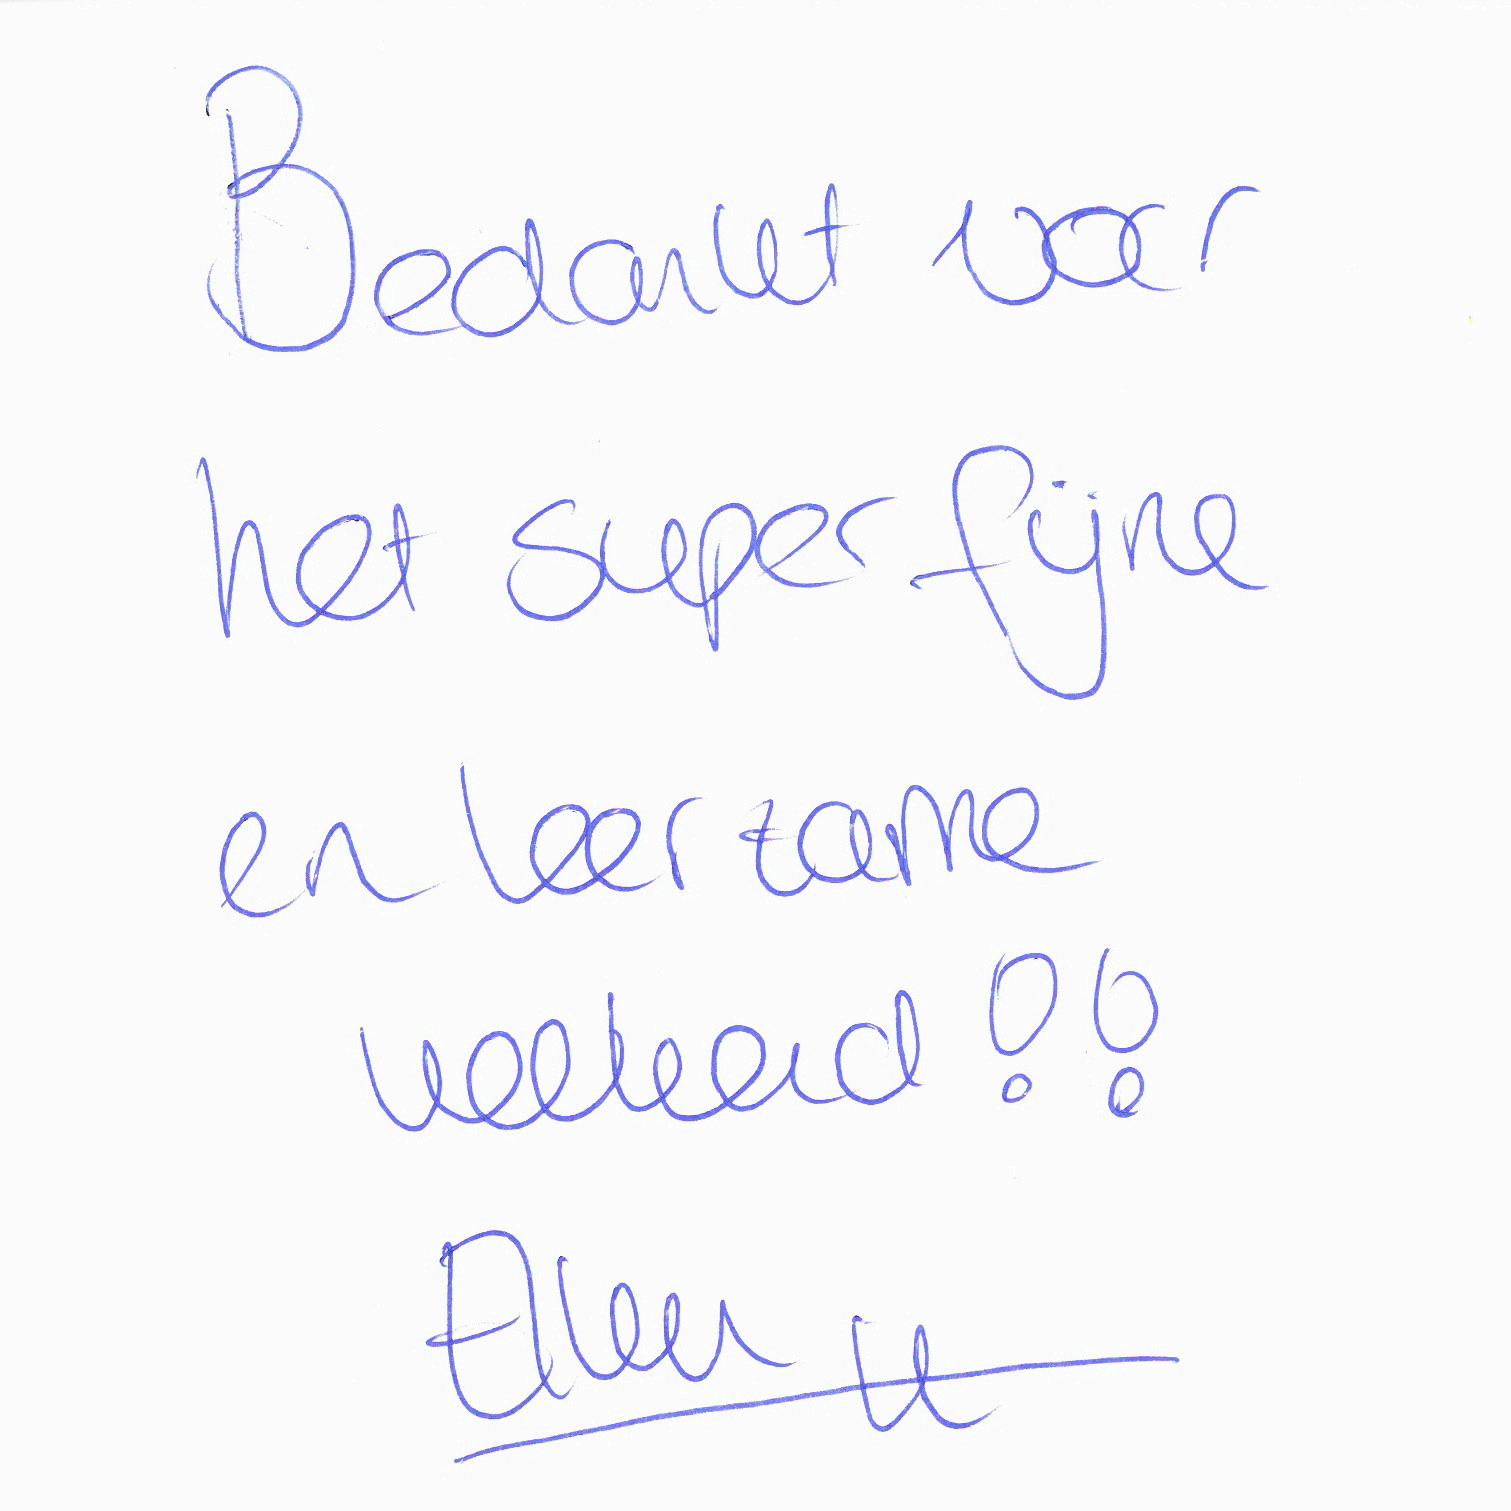 Bedankt voor
het super fijne
en leerzame
weekend!!